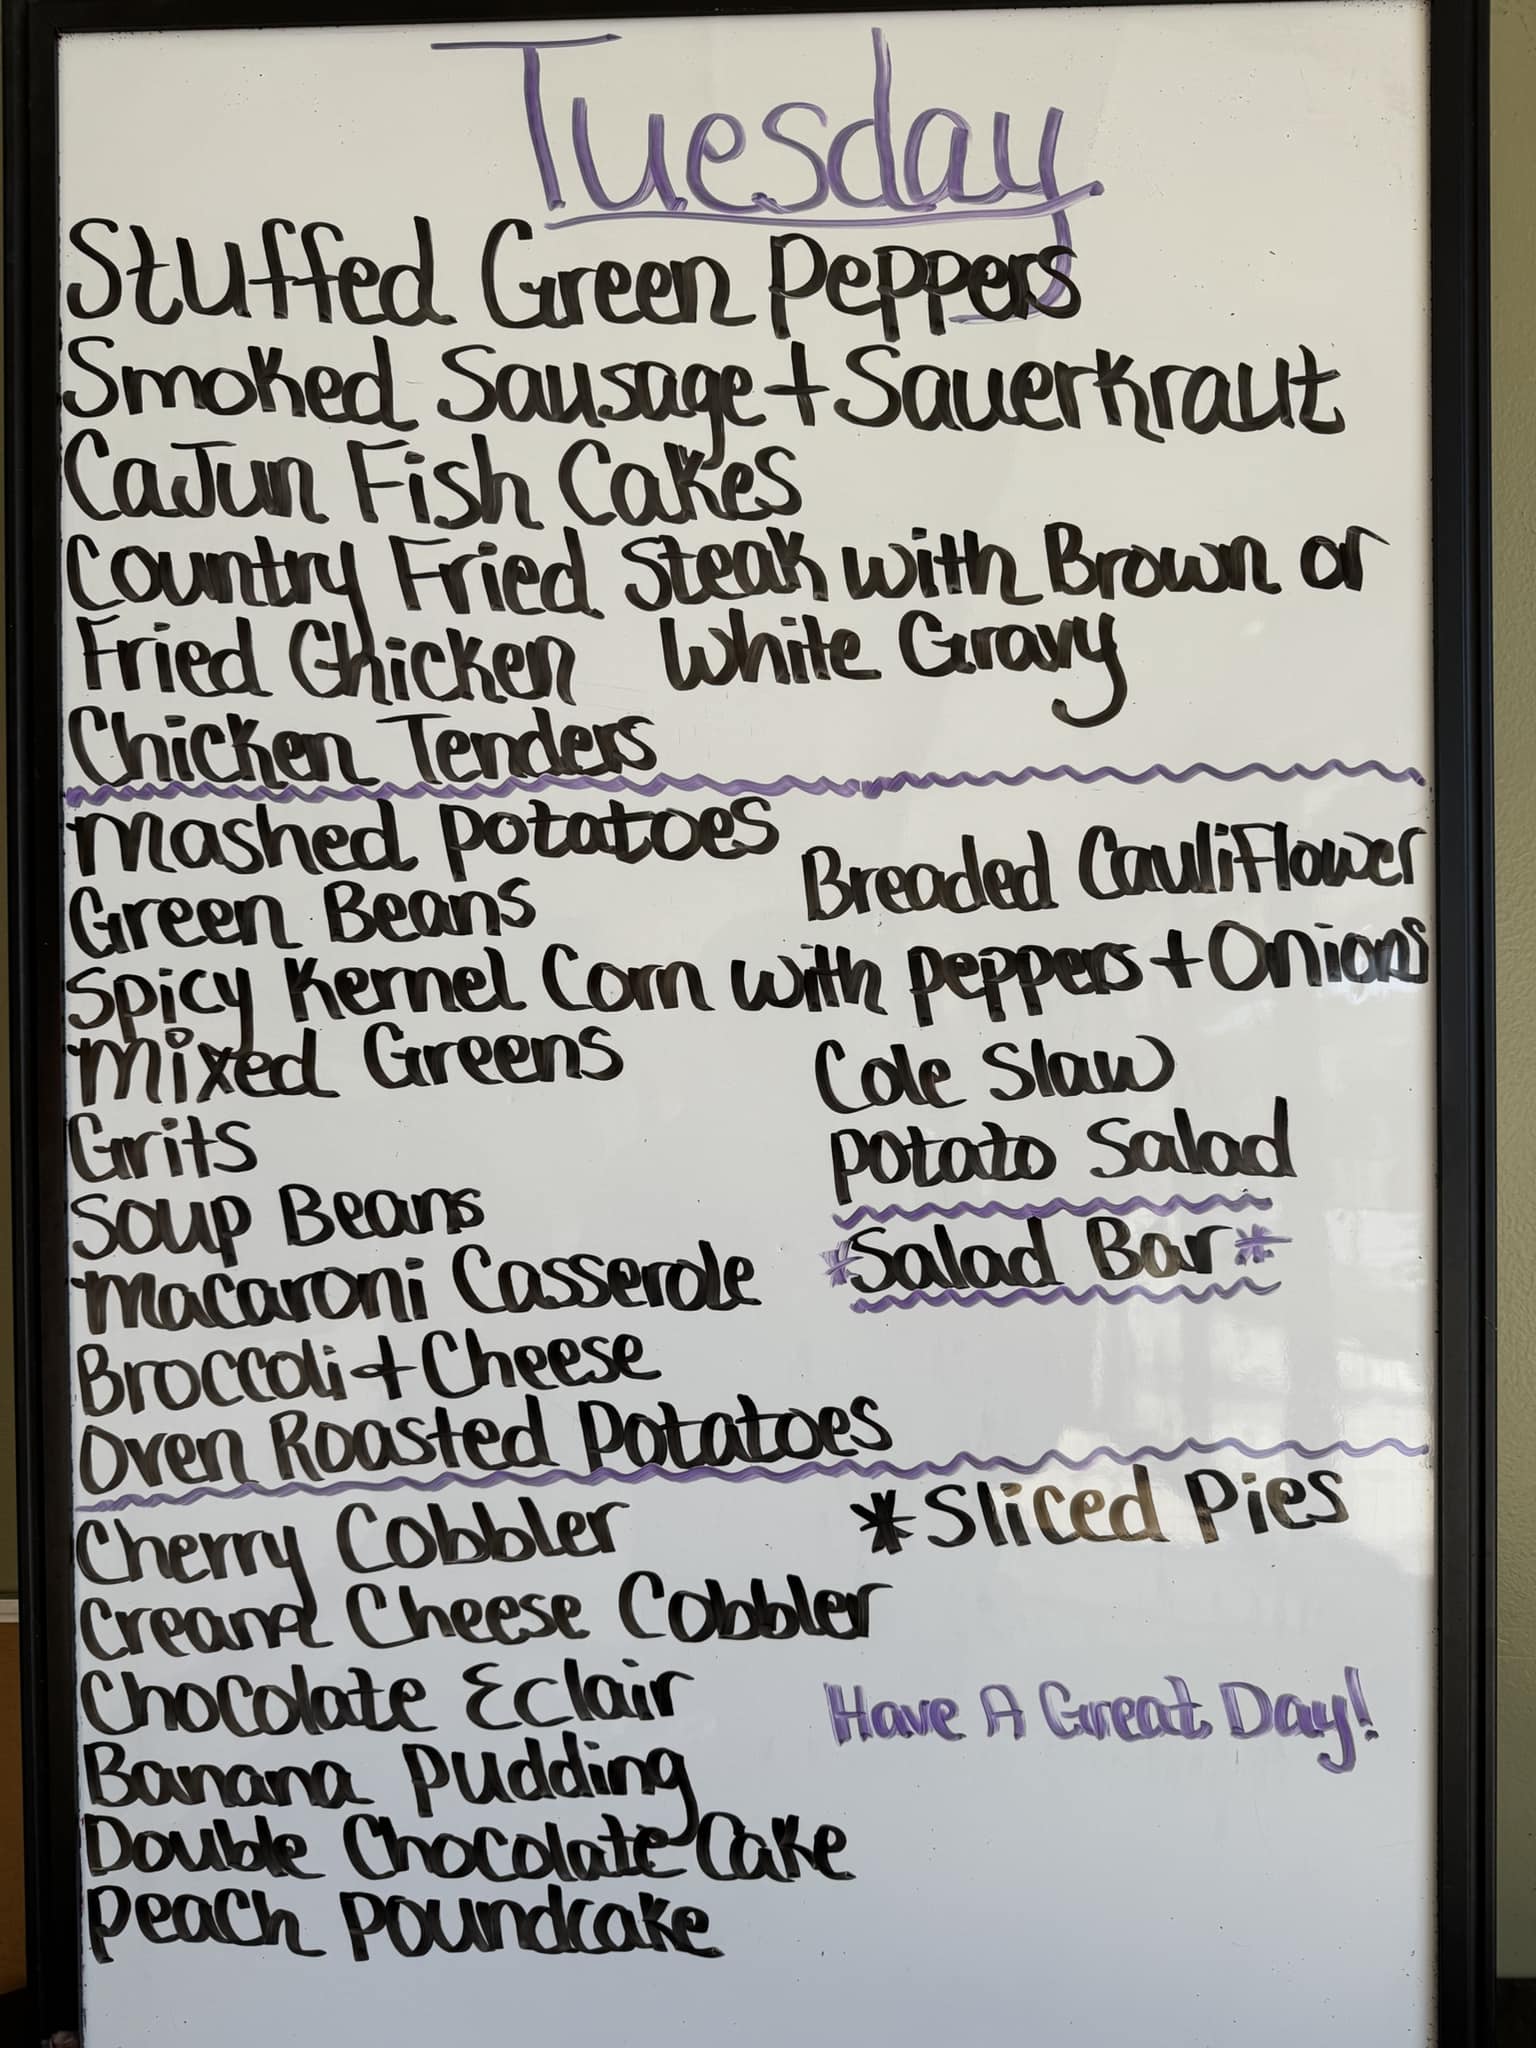 Tuesday
Stuffed Green Peppers
Smoked Sausage + Sauerkraut
Cajun Fish Cakes
Country Fried Steak with Brown or
White Gravy
Fried Chicken
Chicken Tenders
Mashed Potatoes
Green Beans
Breaded Cauliflower
Spicy Kernel Corn with Peppers + Onions
Mixed Greens
Grits
Soup Beans
Macaroni Casserole
Broccoli + Cheese
Oven Roasted Potatoes
Cole Slaw
Potato Salad
*Salad Bar*
Cherry Cobbler
Cream Cheese Cobbler
Chocolate Eclair
Banana Pudding
Double Chocolate Cake
Peach Poundcake
*Sliced Pies
Have A Great Day!